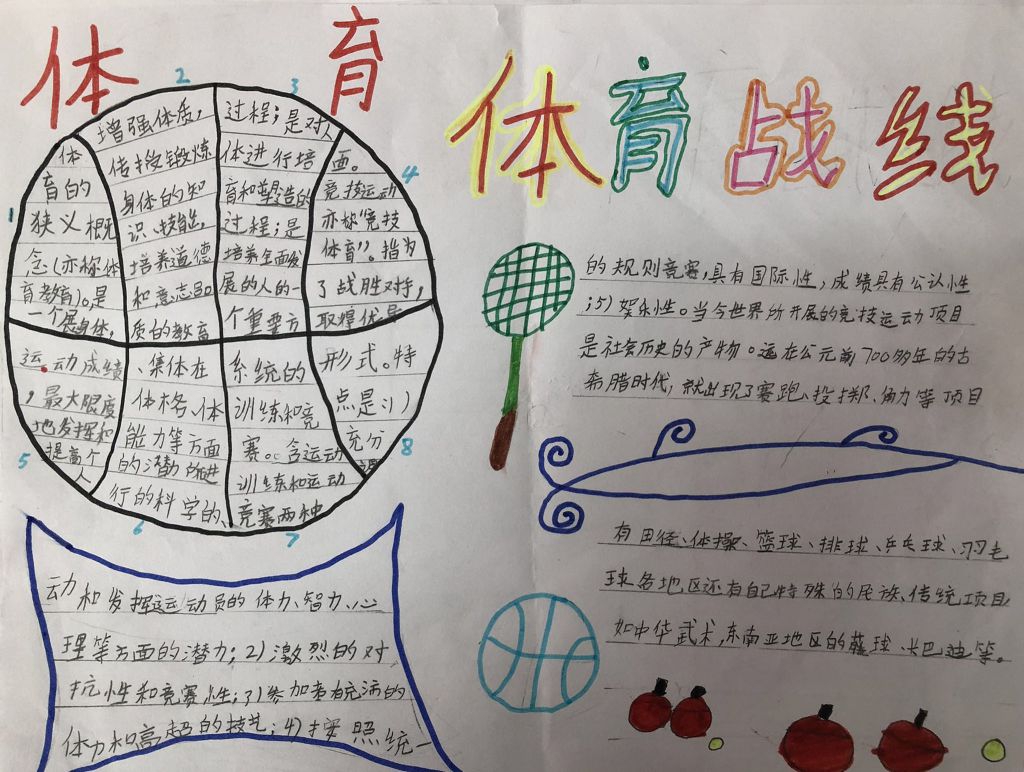 体 育
体育战线
1
体
育的
狭义概
念(亦称体
育教育)。是
一个发展身体,
2
增强体质,
传授锻炼
身体的知
识、技能,
培养道德
和意志品
质的教育
3
过程;是对人
体进行培
育和塑造的
过程;是
培养全面发
展的人的一
个重要方
4
面。
竞技运动
亦称“竞技
体育”。指为
了战胜对手,
取得优异
5
运动成绩
,最大限度
地发挥和
提高个
人
6
、集体在
体格、体
能力等方面
的潜力
行的科学的、
7
系统的
训练和竞
赛。含运动
训练和运动
竞赛两种
8
形式。特
点是:1)
充分
动和发挥运动员的体力、智力、心
理等方面的潜力;2)激烈的对
抗性和竞赛性;3)参加者有充沛的
体力和高超的技艺;4)按照统一
的规则竞赛,具有国际性,成绩具有公认性
;5)娱乐性。当今世界所开展的竞技运动项目
是社会历史的产物。远在公元前700多年的古
希腊时代,就出现了赛跑、投掷、角力等项目
有田径、体操、篮球、排球、乒乓球、羽毛
球各地区还有自己特殊的民族、传统项目
如中华武术,东南亚地区的藤球、卡巴迪等。